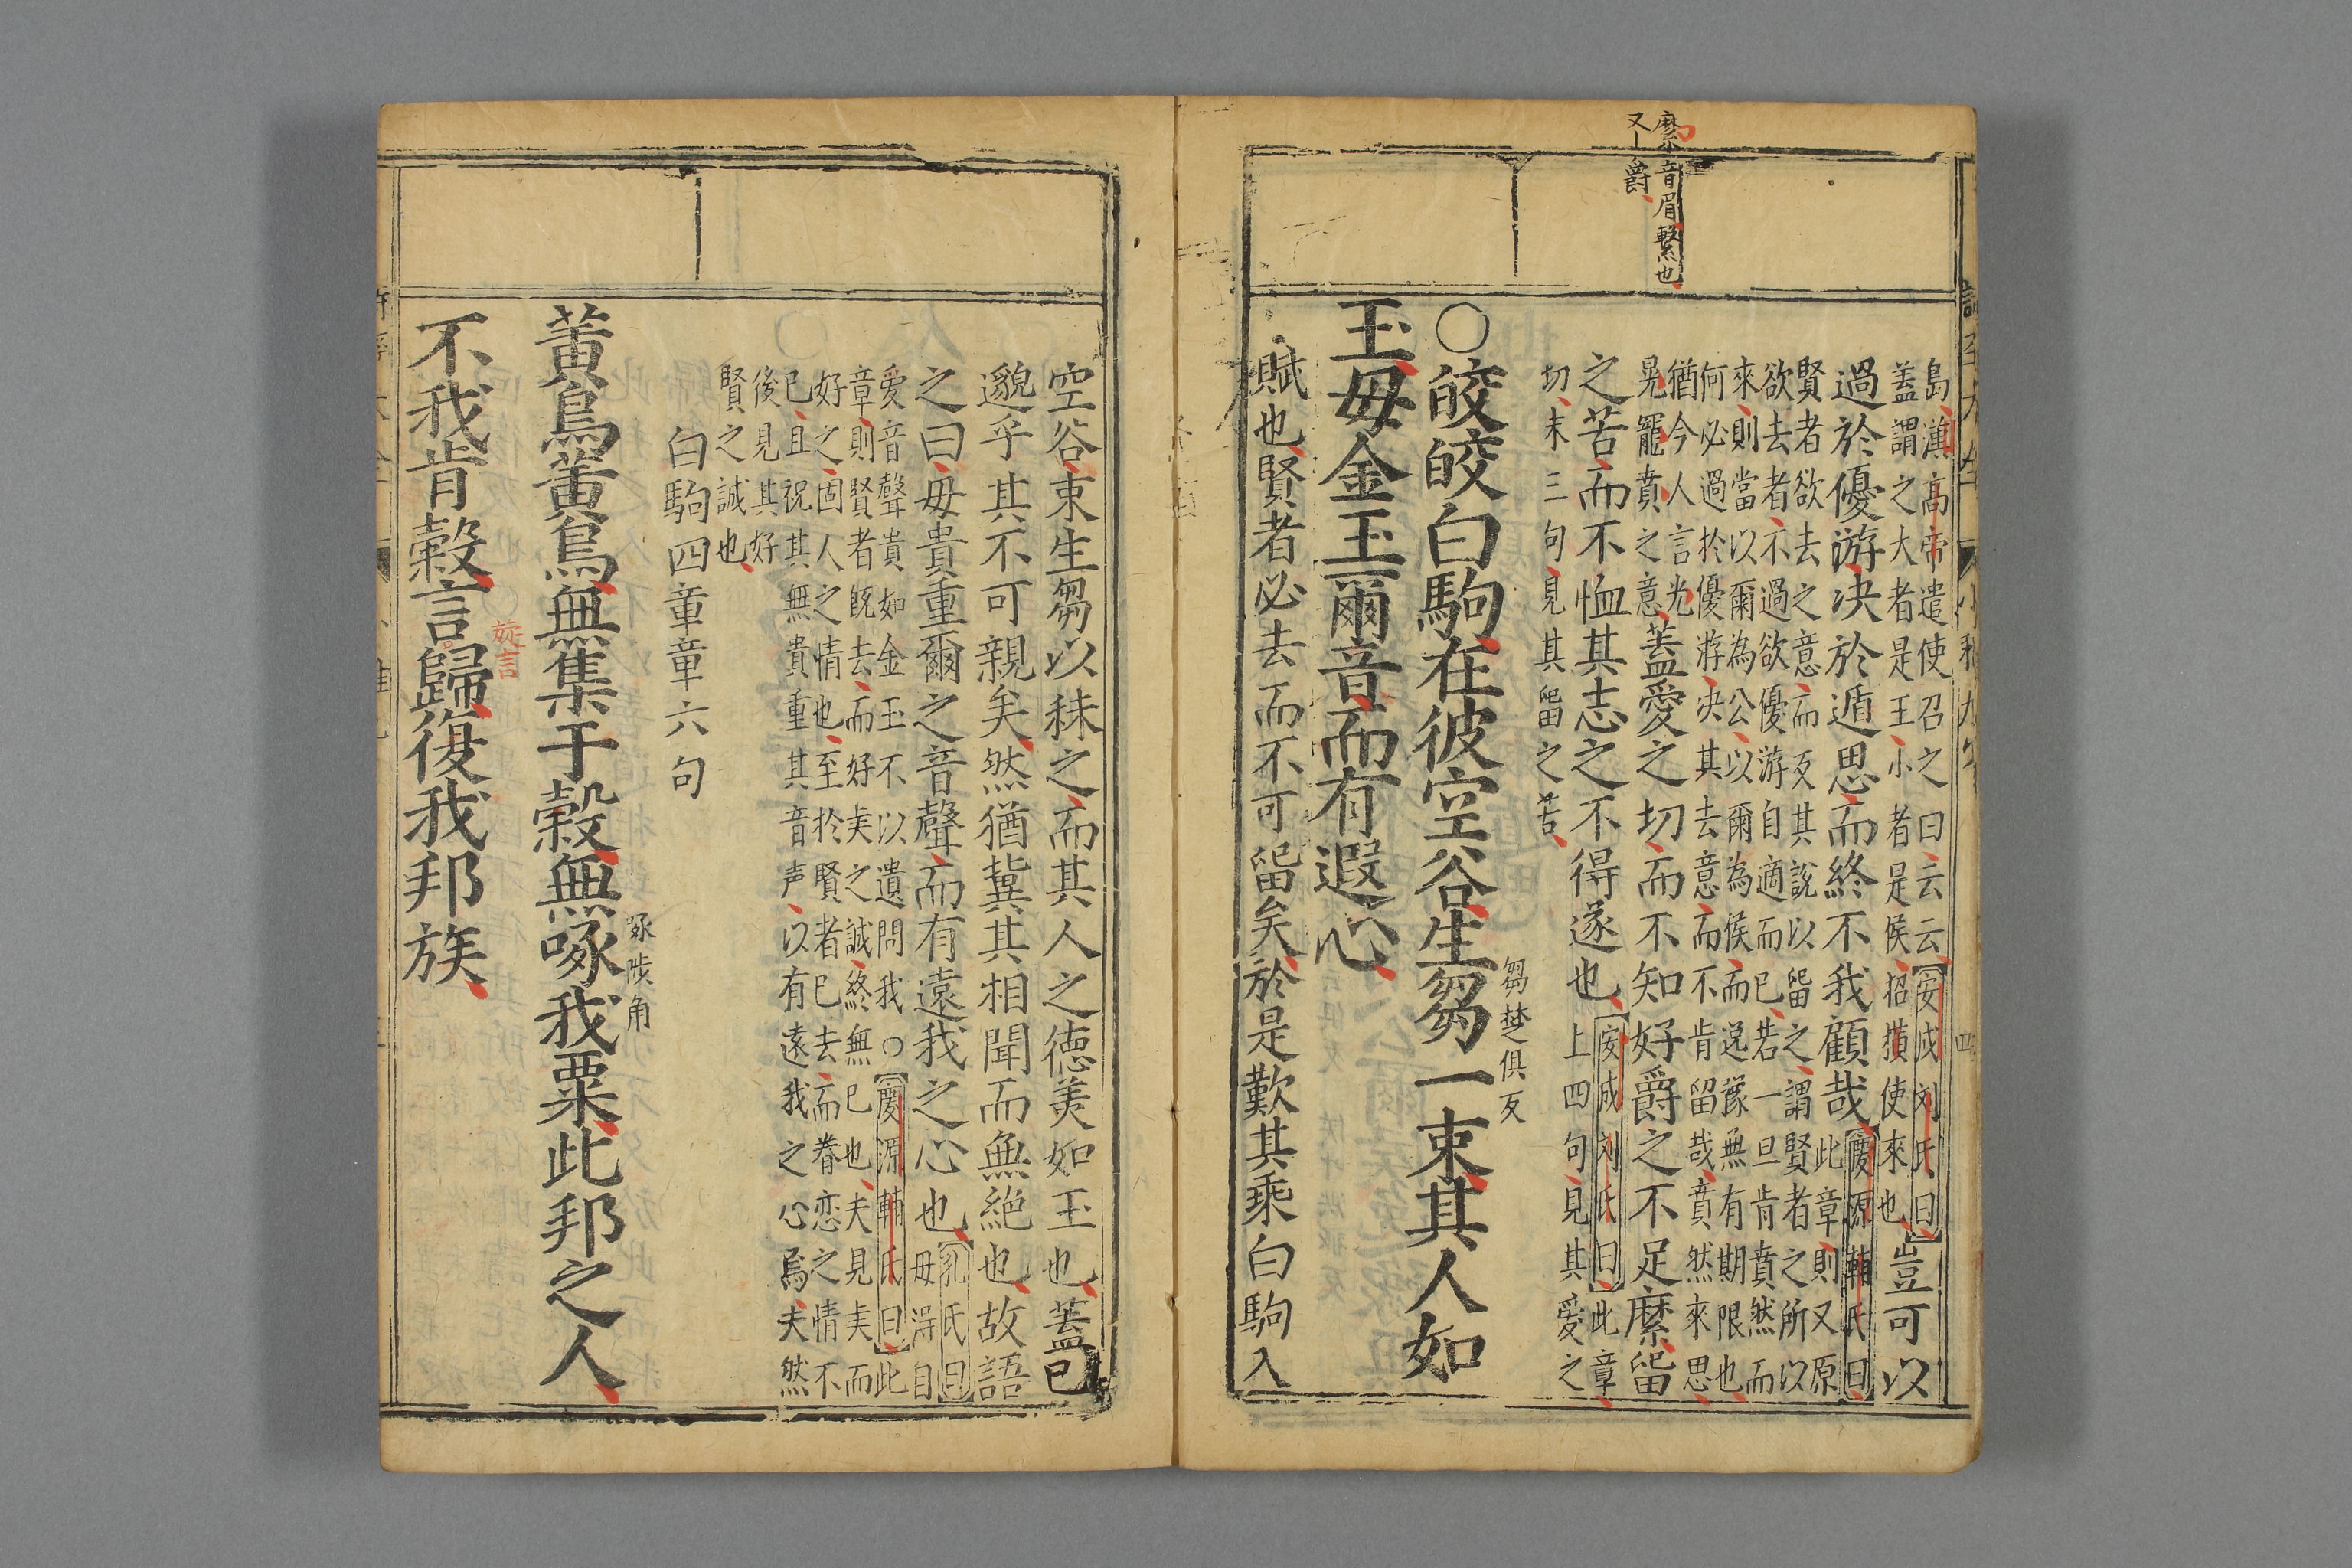 縻音眉繫也
又丨爵
島漢高帝遣使召之曰云云安成刘氏曰
蓋謂之大者是王小者是侯招橫使來也
豈可以
過於優游决於遁思而終不我顧哉慶源輔氏曰
此章則又原
賢者欲去之意而反其說以畱之謂賢者之所以
欲去者不過欲優游自適而已若一旦肯賁然而
來則當以爾為公以爾為侯而逸豫無有期限也
何必過於優游决其去意而不肯留哉賁然來思
猶今人言光
晃寵賁之意
蓋愛之切而不知好爵之不足縻畱
之苦而不恤其志之不得遂也安成刘氏曰此章
上四句見其愛之
切末三句見其畱之苦
○皎皎白駒在彼空谷生芻一束其人如
芻楚俱反
玉毋金玉爾音而有遐心
賦也賢者必去而不可畱矣於是歎其乘白駒入
空谷束生芻以秣之而其人之德美如玉也蓋已
邈乎其不可親矣然猶冀其相聞而無絕也故語
之曰毋貴重爾之音聲而有遠我之心也孔氏曰
毋得自
愛音聲貴如金玉不以遺問我○慶源輔氏曰此
章則賢者旣去而好矣之誠終無已也夫見矣而
好之固人之情也至於賢者已去而眷恋之情不
已且祝其無貴重其音声以有遠我之心焉夫然
後見其好
賢之誠也
白駒四章章六句
黃鳥黃鳥無集于榖無啄我粟此邦之人
啄陟角
不我肯榖言歸復我邦族
旋言